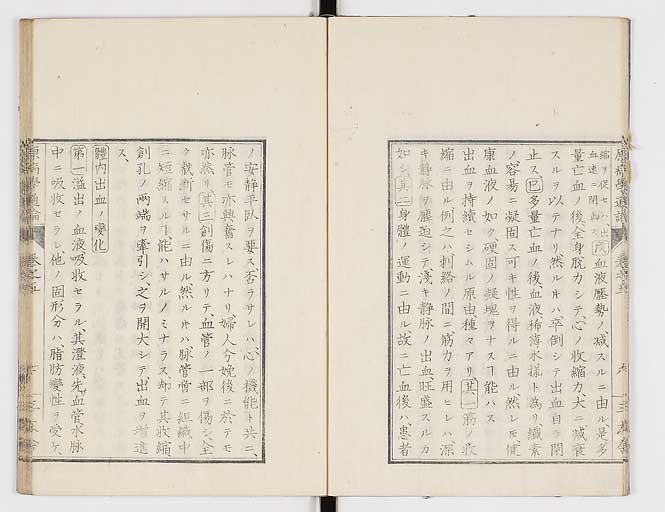 縮ヲ促セハ出
血速ニ閉止ス
戊血液壓勢ノ減スルニ由ル是多
量亡血ノ後全身脫力シテ、心ノ收縮力大ニ減衰
スルヲ以テナリ然ル𪜈、卒倒シテ出血自ラ閉
止ス、巳多量亡血ノ後、血液稀薄水様ト為リ纖素
ノ容易ニ凝固ス可キ性ヲ得ルニ由ル然レ𪜈健
康血液ノ如ク硬固ノ凝塊ヲナスヿ能ハス
出血ヲ持続セシムル原由種々アリ其一筋ノ收
縮ニ由ル例之ハ刺絡ノ間ニ筋力ヲ用ヒレハ深
キ靜脉ヲ壓迫シテ淺キ靜脉ノ出血旺盛スルカ
如シ其二身體ノ運動ニ由ル、故ニ亡血後ハ、患者
ノ安靜平臥ヲ要ス否ラサレハ、心ノ機能ト共ニ、
脉管モ亦興奮スレハナリ婦人分娩後ニ於テモ
亦然リ其三創傷ニ方リテ、血管ノ一部ヲ傷ジ全
ク截断セサルニ由ル然ル𪜈ハ脉管啻ニ組織中
ニ短縮スルヿ能ハサルノミナラス却テ其收縮
創孔ノ兩端ヲ牽引シ、之ヲ開大シテ出血ヲ增進
ス、
體内出血ノ變化
第一溢出ノ血液吸收セラル、其澄液、先血管水脉
中ニ吸收セラレ、他ノ固形分ハ脂肪變性ヲ受ケ、
原病學通論
卷之五
三